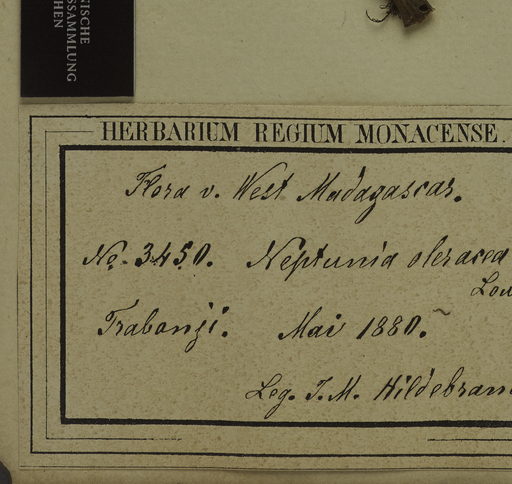 NISCHE
SSAMMLUNG
HEN
HERBARIUM REGIUM MONACENSE.
Flora v. West Madagascar.
No. 3450. Neptunia oleracea
Lou
Trabonji. Mai 1880.
Leg. J. M. Hildebran